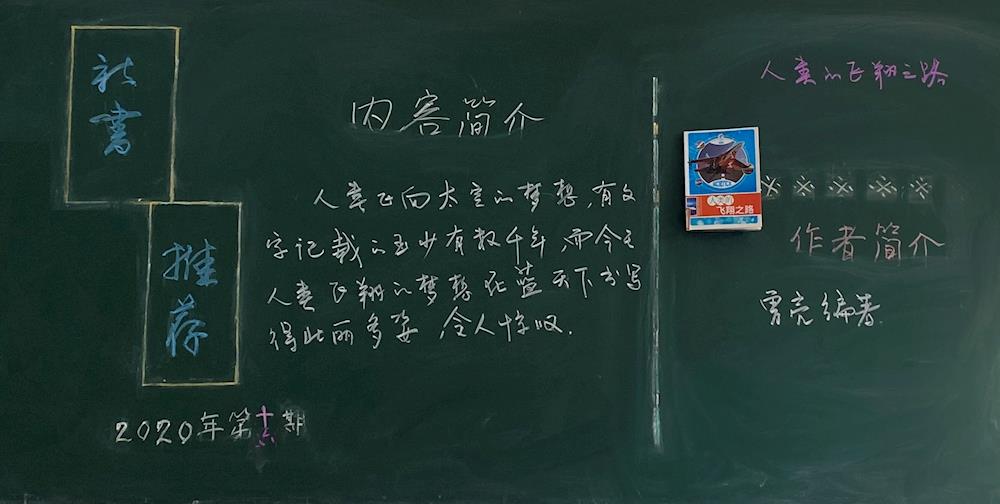 新书
推荐
2020年第十六期
内容简介
人类飞向太空的梦想,有文
字记载的至少有数千年,而今天
人类飞翔的梦想在蓝天下书写
得此丽多姿 令人惊叹.
人类的飞翔之路
人类的
飞翔之路
※※※※※
作者简介
曹亮编著.